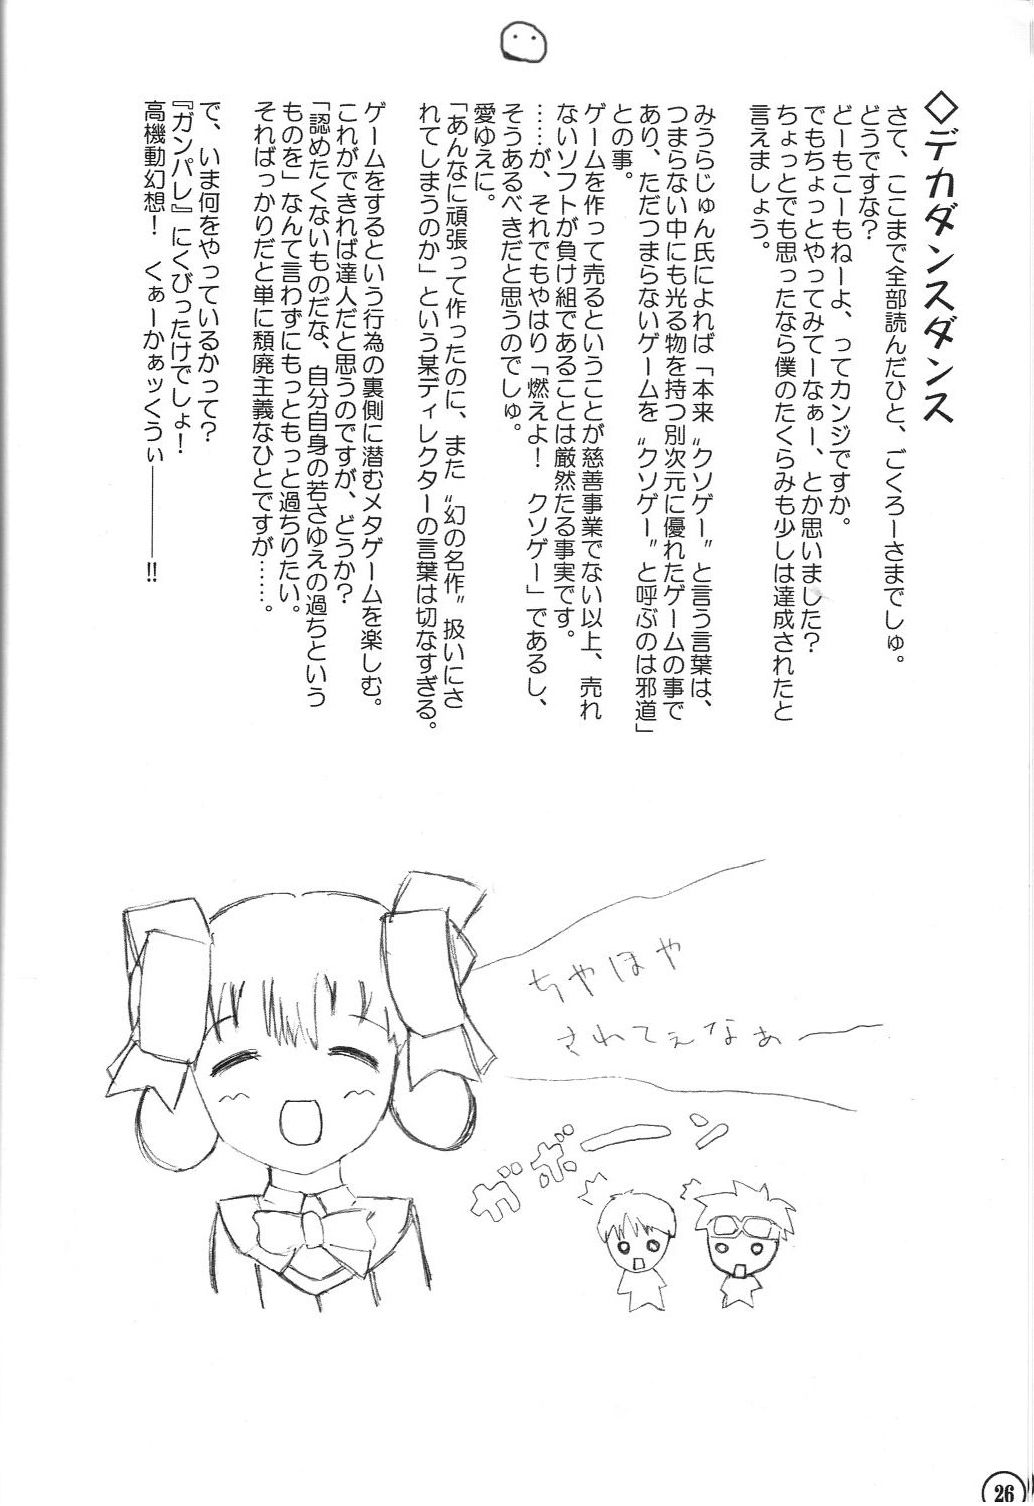 ◇デカダンスダンス
さて、ここまで全部読んだひと、ごくろーさまでしゅ。
どうですな?
どーもこーもねーよ、ってカンジですか。
でもちょっとやってみてーなぁー、とか思いました?
ちょっとでも思ったなら僕のたくらみも少しは達成されたと
言えましょう。
みうらじゅん氏によれば「本来〝クソゲー〟と言う言葉は、
つまらない中にも光る物を持つ別次元に優れたゲームの事で
あり、ただつまらないゲームを〝クソゲー〟と呼ぶのは邪道」
との事。
ゲームを作って売るということが慈善事業でない以上、売れ
ないソフトが負け組であることは厳然たる事実です。
……が、それでもやはり「燃えよ! クソゲー」であるし、
そうあるべきだと思うのでしゅ。
愛ゆえに。
「あんなに頑張って作ったのに、また〝幻の名作〟扱いにさ
れてしまうのか」という某ディレクターの言葉は切なすぎる。
ゲームをするという行為の裏側に潜むメタゲームを楽しむ。
これができれば達人だと思うのですが、どうか?
「認めたくないものだな、自分自身の若さゆえの過ちという
ものを」なんて言わずにもっともっと過ちりたい。
そればっかりだと単に頽廃主義なひとですが……。
で、いま何をやっているかって?
『ガンパレ』にくびったけでしょ!
高機動幻想! くぁーかぁッくうぃ――――!!
ちやほや
されてぇなぁー
ガボーン
26